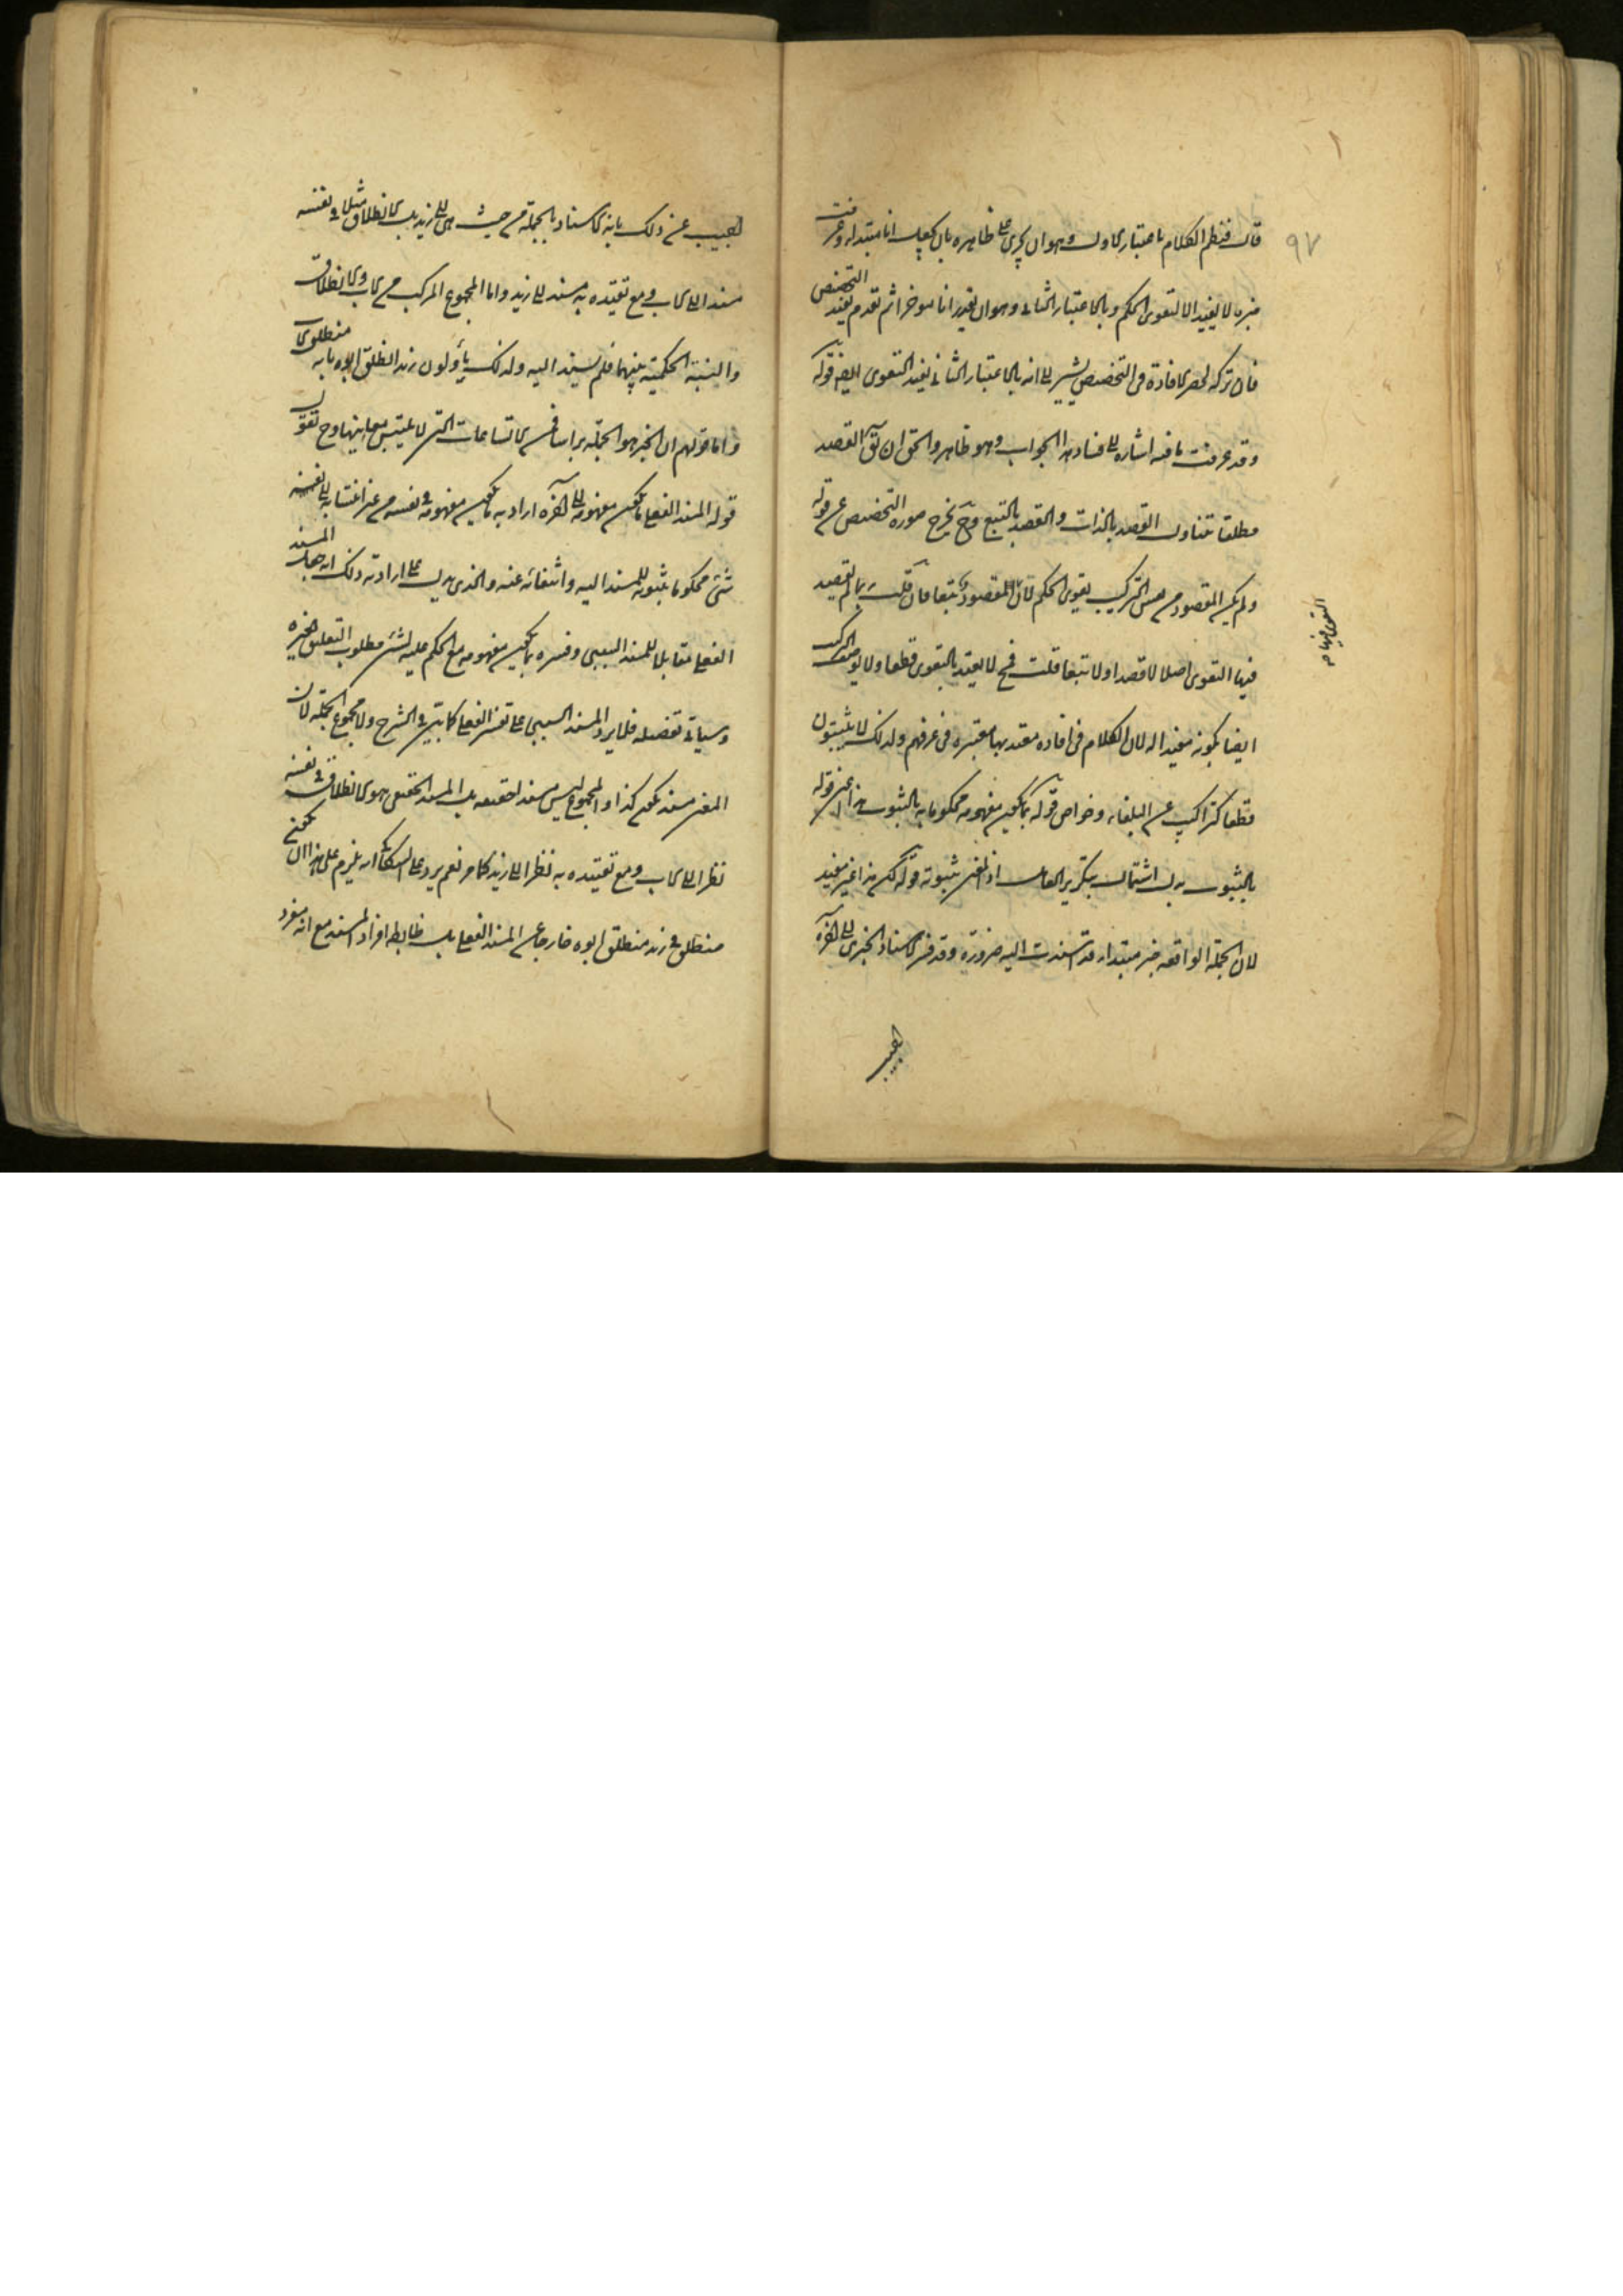 ٩٧
قال فنظم الكلام بالاعتبار الاول وهو ان يجرى على ظاهره بان يجعل انا مبتدا وعرفت
خبره لا يفيد الا التقوى الحكم وبالاعتبار الثانى وهو ان يقدر انا مؤخرا ثم تقدم يفيد التخصيص
فان تركه لحصر الافادة فى التخصيص يشير الى انه بالاعتبار الثانى يفيد التقوى ايضا قوله
وقد عرفت ما فيه اشارة الى فساد هذا الجواب وهو ظاهر والحق ان القصد
مطلقا يتناول القصد بالذات والقصد بالتبع وح يخرج صورة التخصيص عن قوله
ولم يكن المقصود من نفس التركيب تقوى الحكم لان المقصود تبعا فان قلت ربما لم يقصد
فيها التقوى اصلا لا قصدا ولا تبعا قلت فح لا يعتد بالتقوى قطعا ولا يوصف التركيب
ايضا بكونه مفيدا له لان الكلام فى افادة معتد بها معتبرة فى عرفهم ولذلك لا يثبتون
قطعا لتراكيب غير البلغاء خواص قوله بما يكون مفهومه محكوما به بالثبوت هذا اعنى قوله
بالثبوت بدل اشتمال بتكرير العامل اذ المعنى بثبوته قوله لكن هذا غير مفيد
لان الجملة الواقعة خبر مبتدا قد اسندت اليه ضرورة وقد فسر الاسناد الخبرى الى آخره
التقوى فيها صح
لجيب
لجيب عن ذلك بانه لا اسناد بالجملة من حيث هى الى زيد بل الانطلاق مثلا فى نفسه
مسند الى الاب ومع تقيده به مسند الى زيد واما المجموع المركب من الاب والانطلاق
والنسبة الحكمية بينهما فلم يسند اليه ولذلك يأولون زيد انطلق ابوه بانه منطلق الاب
واما قولهم ان الخبر هو الجملة براسها فمن التسامحات التى لا يلتبس معانيها وح نقول
قوله المسند الفعلى ما يكون مفهومه الى آخره اراد به ما يكون مفهومه فى نفسه من غير انتسابه الى نفسه
شئ محكوما بثبوته للمسند اليه وانتفائه عنه والذى يدل على ارادته ذلك انه جعل المسند
الفعلى مقابلا للمسند السببى وفسره بما يكون مفهومه مع الحكم عليه لشئ مطلوب التعليق بغيره
وسياتى تفصيله فلا يرد المسند السببى على تفسير الفعلى كما بينه فى الشرح ولا مجموع الجملة لان
المعنى مسند بحكم كذا والمجموع ليس مسندا حقيقة بل المسند الحقيقى هو الانطلاق فى نفسه
نظرا الى الاب ومع تقيده به نظرا الى زيد كما مر نعم يرد على السكاكى انه يلزم على هذا ان يكون
منطلق فى زيد منطلق ابوه خارجا عن المسند الفعلى بل ضابطه افراد المسند مع انه مفرد